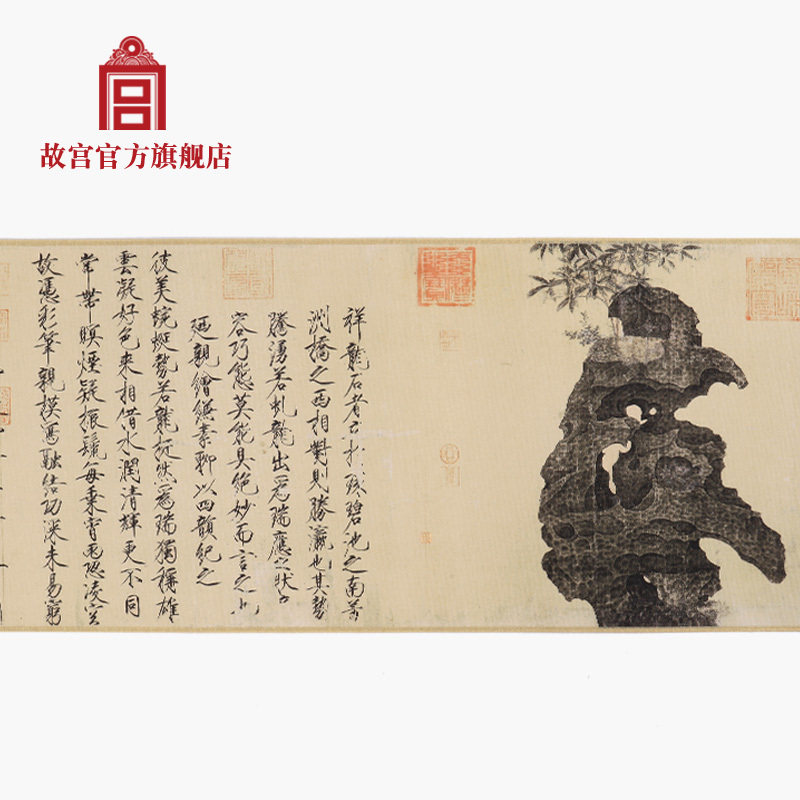 故宫官方旗舰店
祥龍石者立於環碧池之南芳
洲橋之西相對則勝瀛也其勢
騰湧若虬龍出爲瑞應之狀奇
容巧態莫能具絕妙而言之也
廼親繪縑素聊以四韻紀之
彼美蜿蜒勢若龍挺然爲瑞獨稱雄
雲凝好色來相借水潤清輝更不同
常帶瞑煙疑振鬣每乘宵雨恐凌空
故憑彩筆親模寫融結功深未易窮